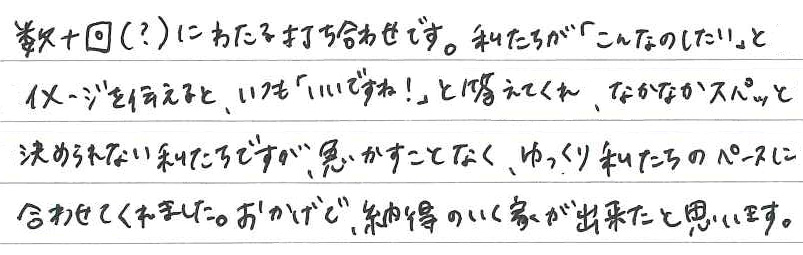 数十回(?)にわたる打ち合わせです。私たちが「こんなのしたい」と
イメージを伝えると、いつも「いいですね!」と答えてくれ、なかなかスパッと
決められない私たちですが、急かすことなく、ゆっくり私たちのペースに
合わせてくれました。おかげで、納得のいく家が出来たと思います。